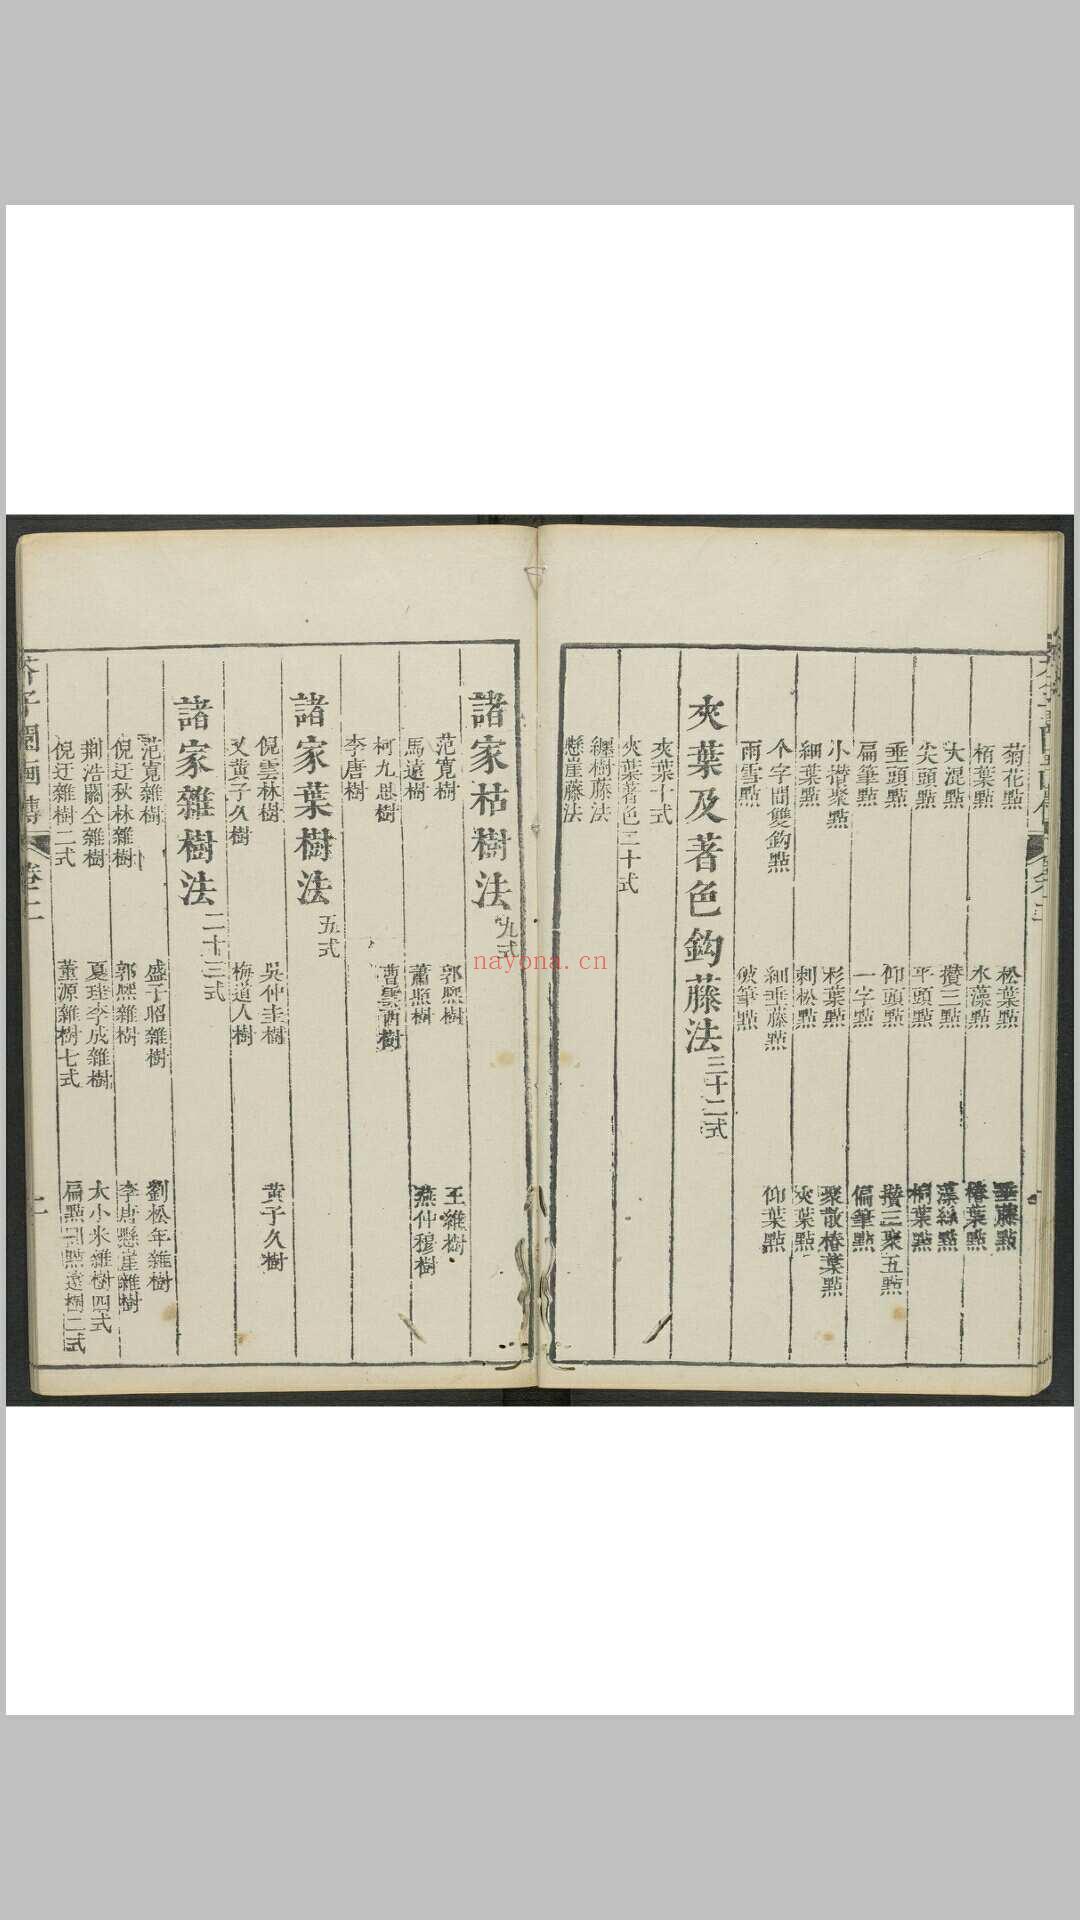 菊花點 松葉點 垂藤點
栢葉點 水藻點 椿葉點
大混點 攢三點 藻絲點
尖頭點 平頭點 桐葉點
垂頭點 仰頭點 攢三聚五點
扁筆點 一字點 偏筆點
小攢聚點 杉葉點 聚散椿葉點
細葉點 刺松點 夾葉點
个字間雙鈎點 細垂藤點 仰葉點
雨雪點 破筆點
夾葉及著色鈎藤法 三十二式
夾葉十式
夾葉著色二十式
纏樹藤法
懸崖藤法
諸家枯樹法 九式
范寬樹 郭熙樹 王維樹
馬遠樹 蕭照樹 燕仲穆樹
柯九思樹 曹雲西樹
李唐樹
諸家葉樹法 五式
倪雲林樹 吳仲圭樹 黃子久樹
又黃子久樹 梅道人樹
諸家雜樹法 二十三式
范寬雜樹 盛子昭雜樹 劉松年雜樹
倪迂秋林雜樹 郭熙雜樹 李唐懸崖雜樹
荆浩關仝雜樹 夏珪李成雜樹 大小米雜樹四式
倪迂雜樹二式 董源雜樹七式 扁點圓點遠樹二式
芥子園畫傳 卷二
nayona.cn